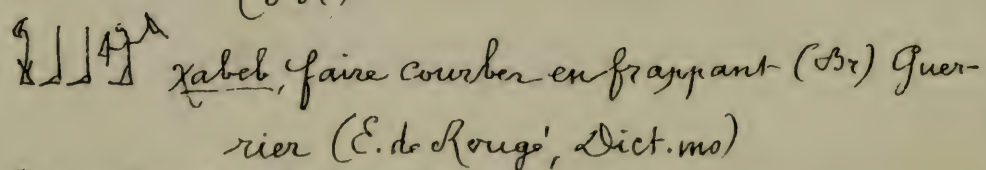 χabel, faire courber en frappant (Br) Guer-
rier (E. de Rougé, Dict. mo)